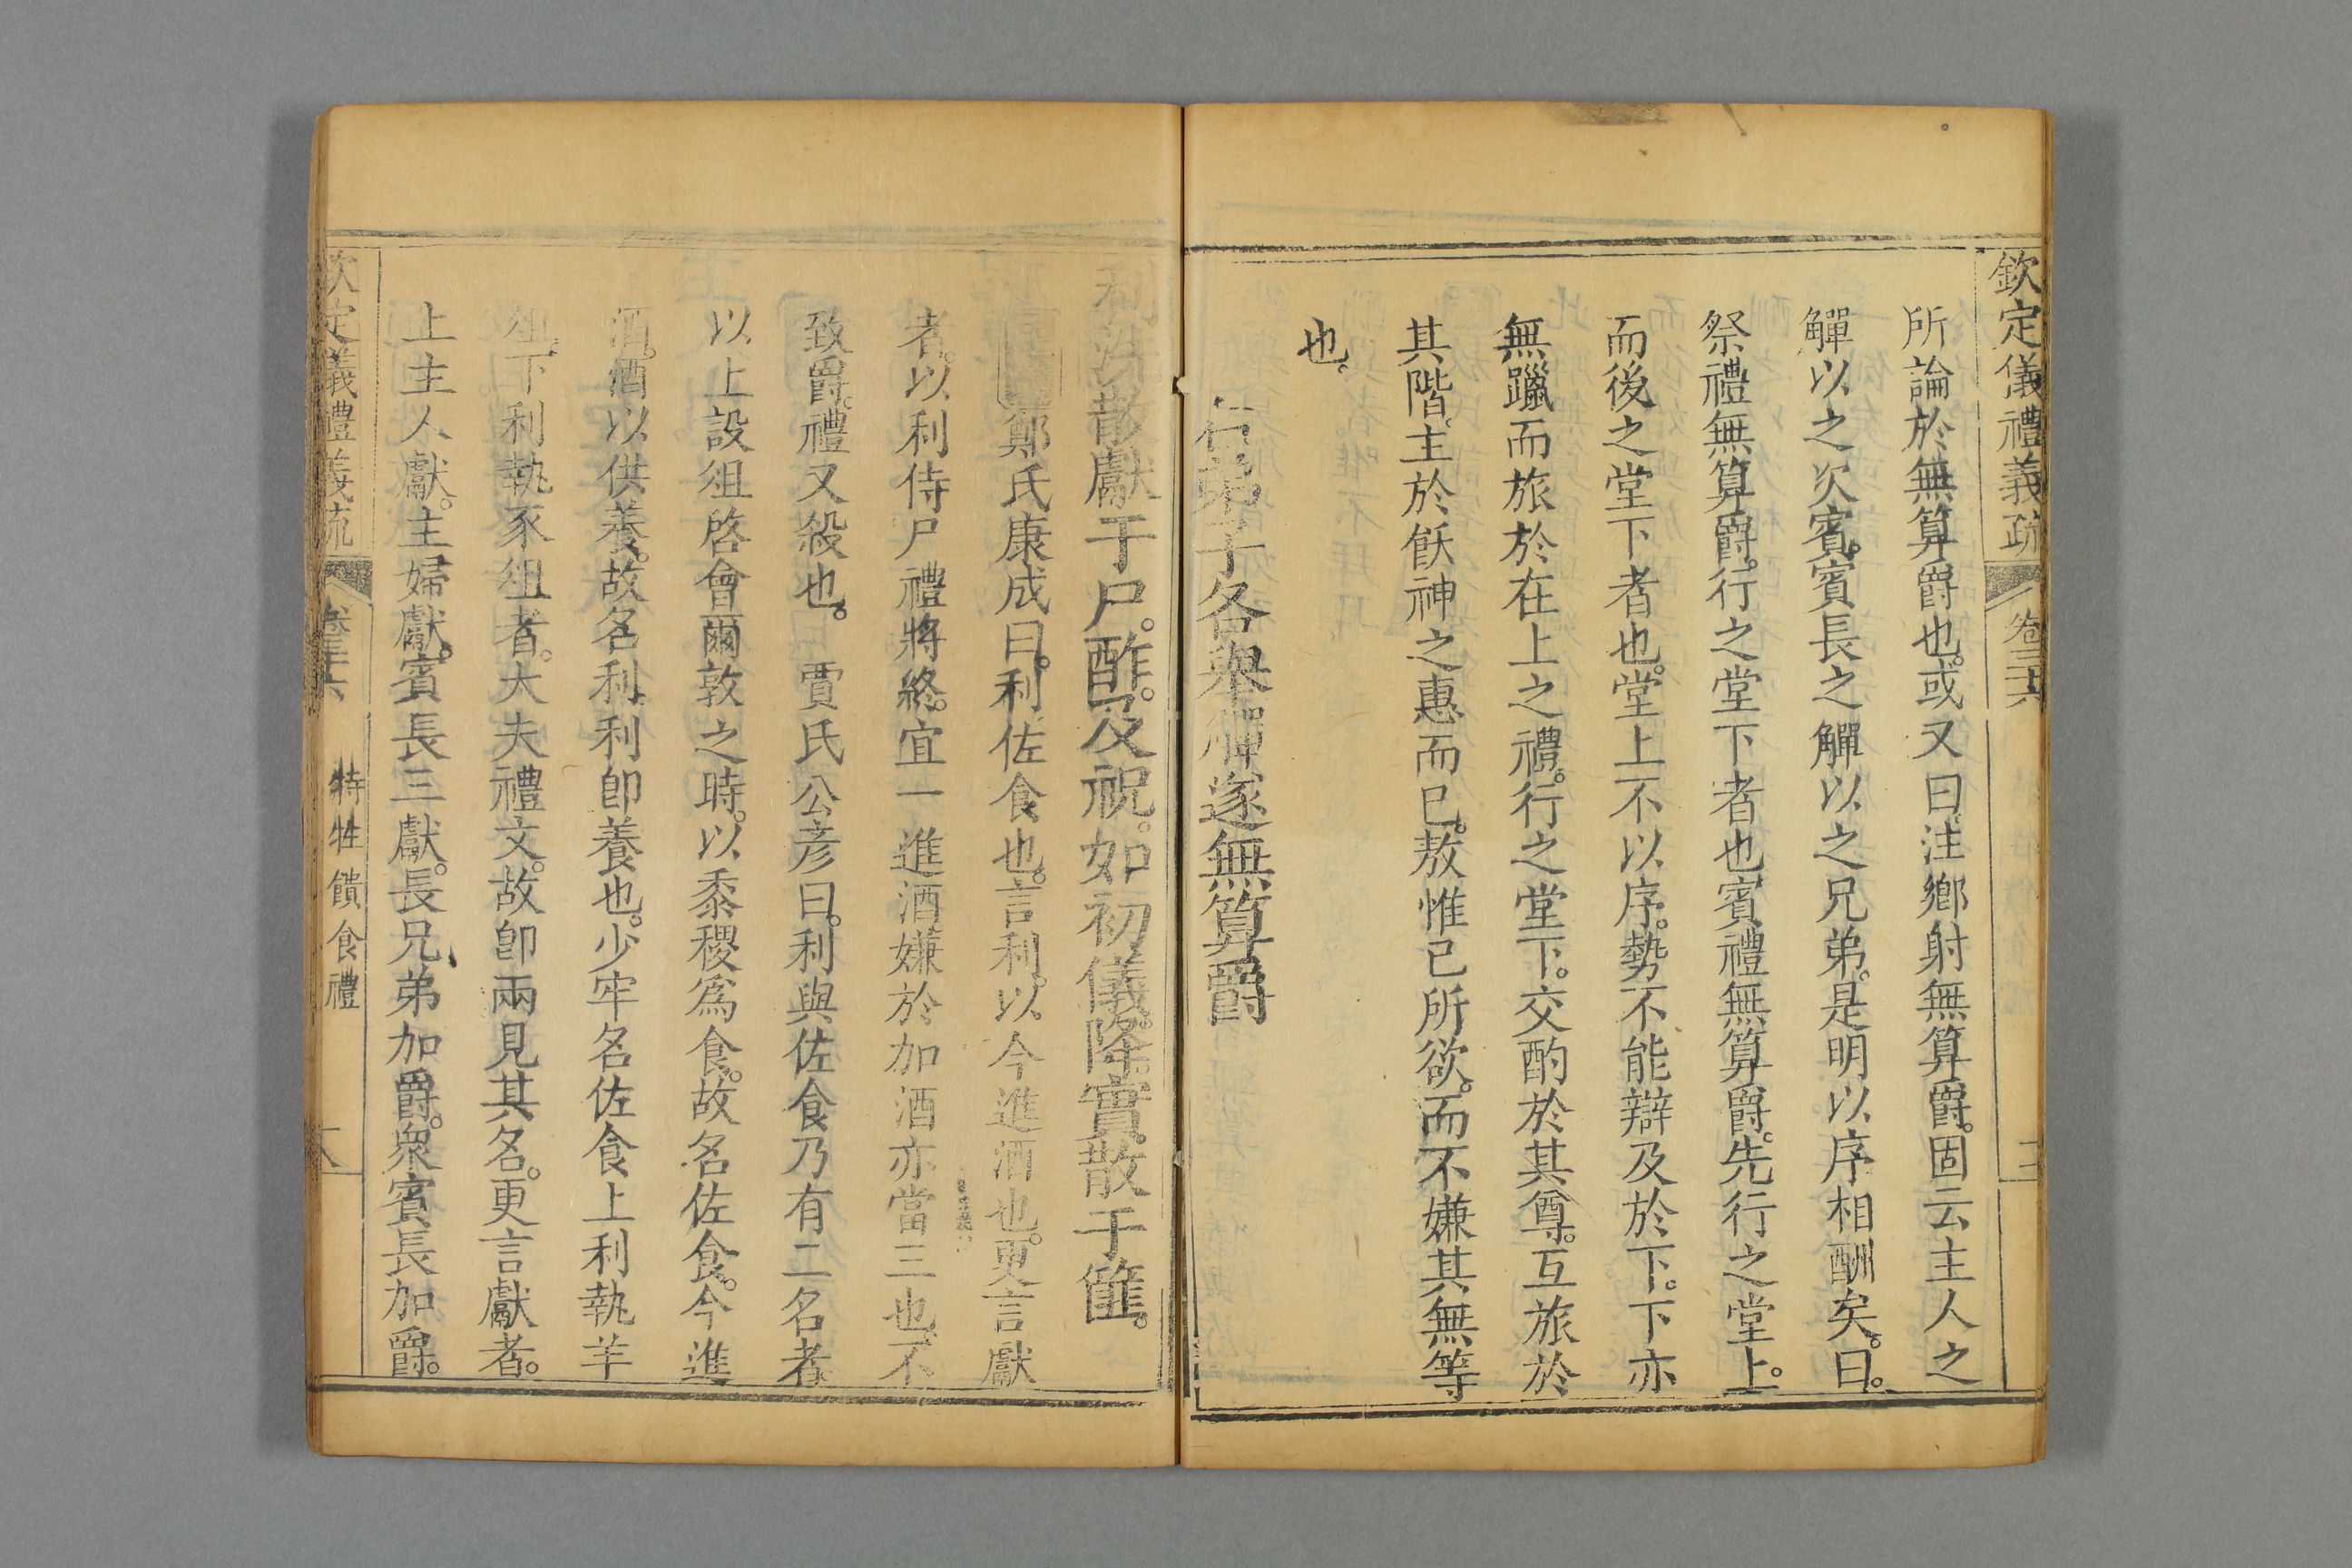 欽定儀禮義疏 卷三十六
所論於無算爵也。或又曰。注鄉射無算爵。固云主人之
觶以之次賓。賓長之觶以之兄弟。是明以序相酬矣。曰。
祭禮無算爵。行之堂下者也。賓禮無算爵。先行之堂上。
而後之堂下者也。堂上不以序。勢不能辯及於下。下亦
無躐而旅於在上之禮。行之堂下。交酌於其尊。互旅於
其階。主於飫神之惠而已。敖惟已所欲。而不嫌其無等
也。
右弟子各舉觶遂無算爵
利洗散獻于尸。酢。及祝。如初儀。降。實散于篚。
鄭氏康成曰。利佐食也。言利。以今進酒也。更言獻
者。以利侍尸禮將終。宜一進酒嫌於加酒亦當三也。不
致爵。禮又殺也。 賈氏公彦曰。利與佐食乃有二名者。
以上設俎啓會爾敦之時。以黍稷爲食。故名佐食。今進
酒。酒以供養。故名利。利卽養也。少牢名佐食上利執羊
俎。下利執豕俎者。大夫禮文。故卽兩見其名。更言獻者。
止主人獻。主婦獻。賓長三獻。長兄弟加爵。衆賓長加爵。
欽定儀禮義疏 卷三十六 特牲饋食禮